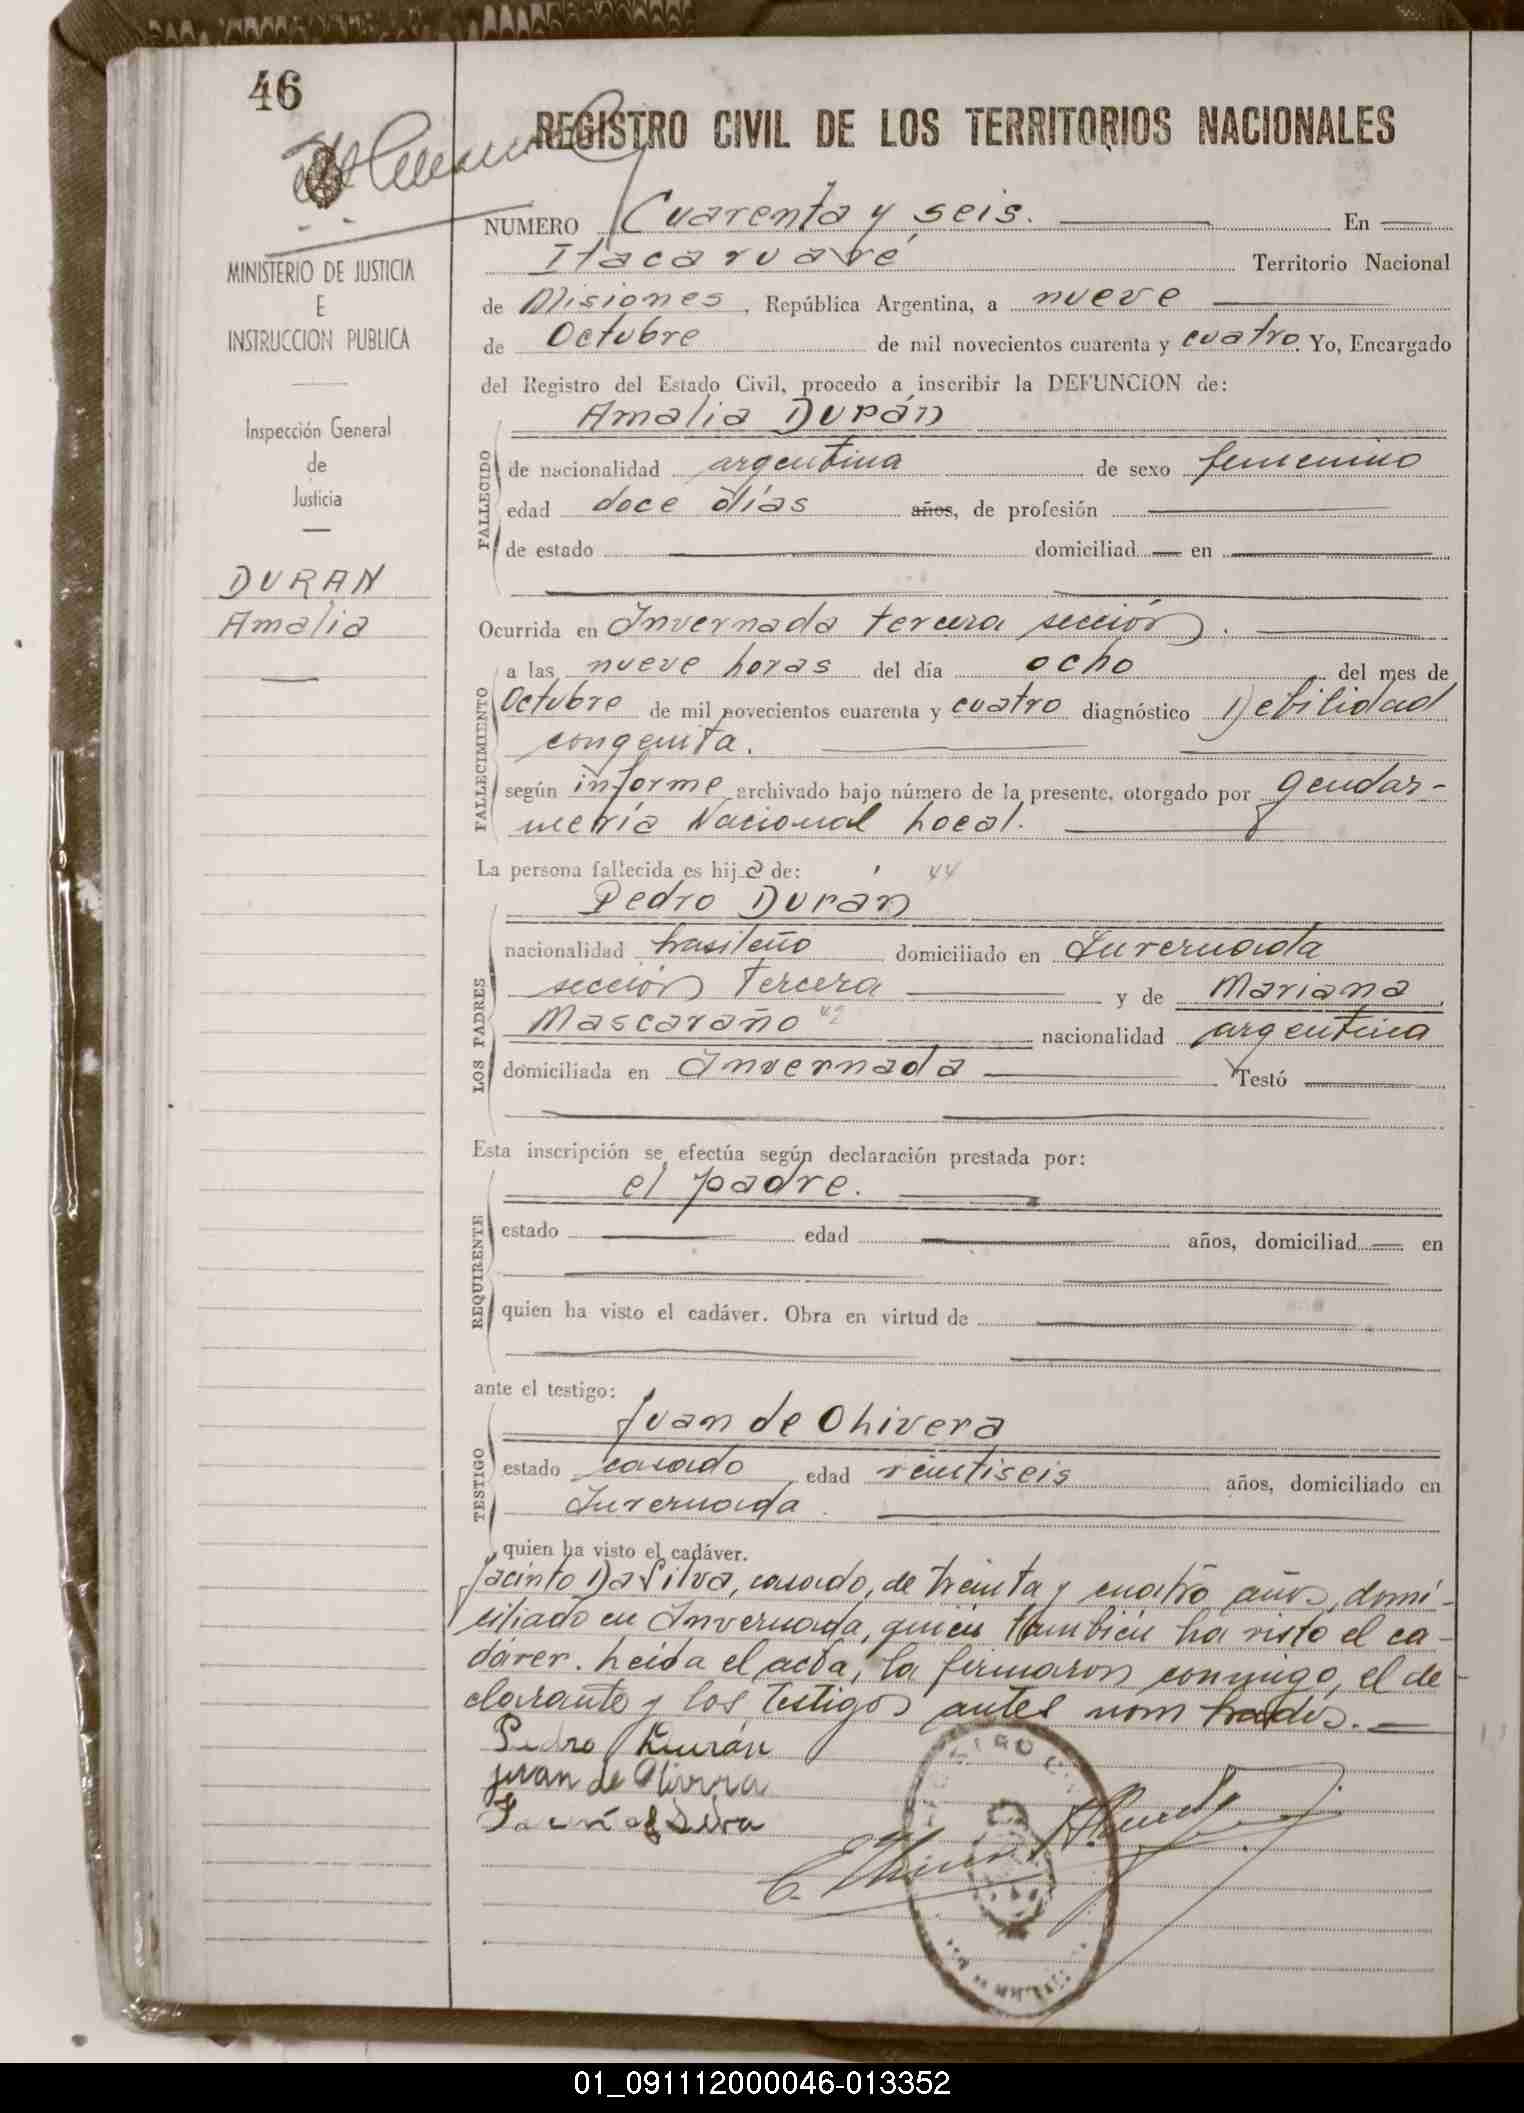 46
REGISTRO CIVIL DE LOS TERRITORIOS NACIONALES
MINISTERIO DE JUSTICIA
E
INSTRUCCION PUBLICA
Inspección General
de
Justicia
DURAN
Amalia
NUMERO Cuarenta y seis. En
Itacaruaré Territorio Nacional
de Misiones, República Argentina, a nueve
de Octubre de mil novecientos cuarenta y cuatro. Yo, Encargado
del Registro del Estado Civil, procedo a inscribir la DEFUNCION de:
Amalia Durán
FALLECIDO
de nacionalidad argentina de sexo femenino
edad doce días años, de profesión
de estado domiciliad en
Ocurrida en Invernada tercera sección.
FALLECIMIENTO
a las nueve horas del día ocho del mes de
Octubre de mil novecientos cuarenta y cuatro diagnóstico Debilidad
congenita.
según informe archivado bajo número de la presente, otorgado por gendar-
mería Nacional Local.
La persona fallecida es hija de: 44
LOS PADRES
Pedro Durán
nacionalidad brasileño domiciliado en Invernada
sección Tercera y de Mariana
Mascaraño 42 nacionalidad argentina
domiciliada en Invernada Testó
Esta inscripción se efectúa según declaración prestada por:
REQUIRENTE
el padre.
estado edad años, domiciliad en
quien ha visto el cadáver. Obra en virtud de
ante el testigo:
TESTIGO
Juan de Olivera
estado casado edad veintiseis años, domiciliado en
Invernada.
quien ha visto el cadáver.
Jacinto Da Silva, casado, de treinta y cuatro años, domi-
ciliado en Invernada, quien tambien ha visto el ca-
dáver. Leída el acta, la firmaron conmigo, el de-
clarante y los testigos antes nombrados.
Pedro Durán
juan de Olivera
01_091112000046-013352